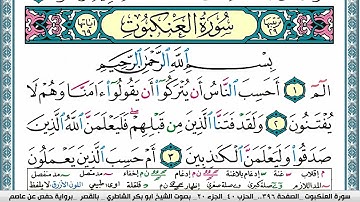 سُورَةُ العَنكَبُوت
بِسْمِ ٱللَّهِ ٱلرَّحْمَٰنِ ٱلرَّحِيمِ
الٓمٓ ١ أَحَسِبَ ٱلنَّاسُ أَن يُتْرَكُوٓا۟ أَن يَقُولُوٓا۟ ءَامَنَّا وَهُمْ لَا
يُفْتَنُونَ ٢ وَلَقَدْ فَتَنَّا ٱلَّذِينَ مِن قَبْلِهِمْ ۖ فَلَيَعْلَمَنَّ ٱللَّهُ ٱلَّذِينَ
صَدَقُوا۟ وَلَيَعْلَمَنَّ ٱلْكَٰذِبِينَ ٣ أَمْ حَسِبَ ٱلَّذِينَ يَعْمَلُونَ
سورة العنكبوت الصفحة ٣٩٦ الجزء ٢٠ بصوت الشيخ أبو بكر الشاطري بالقصر برواية حفص عن عاصم